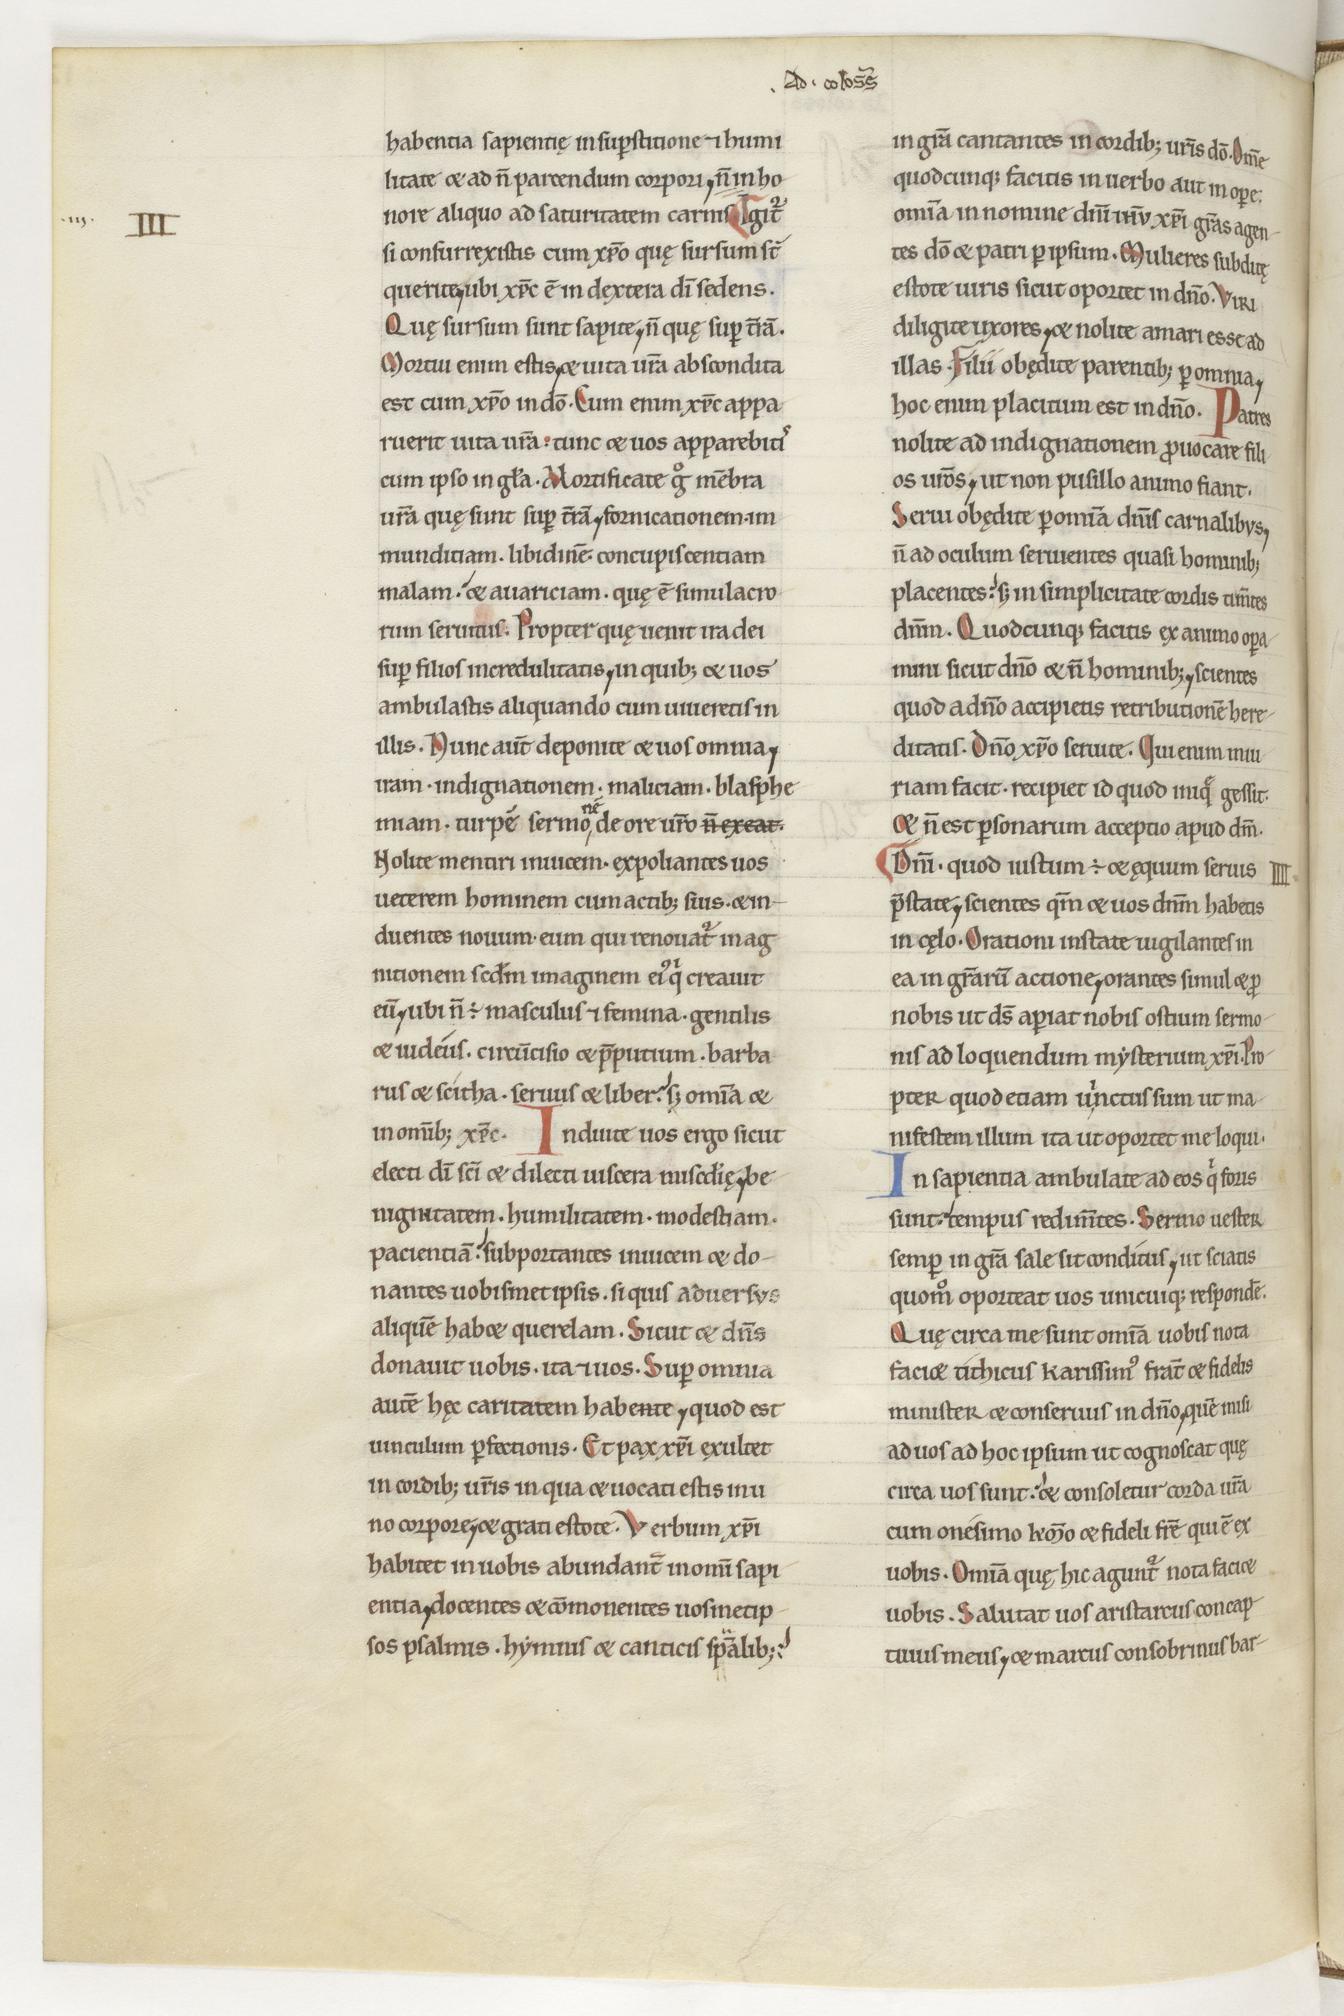 Ad · colosss̄
habentia sapientię insuꝑstitione ⁊ humi
litate & ad n̄ parcendum corpori, n̄ in ho
nore aliquo ad saturitatem carnis Igit᷑
·iii· III
si consurrexistis cum xp̄o quę sursum st̄
querite, ubi xp̄c ē in dextera dī sedens.
Quę sursum sunt sapite, n̄ quę suꝑ t̄rā.
Mortui enim estis, & uita ur̄a abscondita
est cum xp̄o in dō. Cum enim xp̄c appa
ruerit uita ur̄a: tunc & uos apparebitiˢ
cum ipso in gl̄a. Mortificate gͦ mēbra
ur̄a quę sunt suꝑ t̄rā, fornicationem · im
munditiam · libidinē · concupiscentiam
malam : & auariciam · quę ē simulacro
rum seruitus. Propter quę uenit ira dei
suꝑ filios incredulitatis, in quib; & uos
ambulastis aliquando cum uiueretis in
illis. Nunc aut̄ deponite & uos omnia,
iram · indignationem · maliciam · blasphe
miam · turpē sermonē de ore ur̄o n̄ exeat.
Nolite mentiri inuicem · expoliantes uos
ueterem hominem cum actib; suis · & in-
duentes nouum · eum qui renouat᷑ in ag
nitionem scd̄m imaginem eiꝰ qͥ creauit
eū, ubi n̄ ÷ masculus ⁊ femina · gentilis
& iudeus · circūcisio & p̄putium · barba
rus & scitha · seruus & liber : s; om̄ia &
in om̄ib; xp̄c. Induite uos ergo sicut
electi dī sc̄i & dilecti uiscera miscd̄ię, be
nignitatem · humilitatem · modestiam ·
pacientiā : subportantes inuicem & do-
nantes uobismet ipsis · si quis aduersus
aliquē hab& querelam. Sicut & dn̄s
donauit uobis · ita ⁊ uos. Suꝑ omnia
autē hęc caritatem habente, quod est
uinculum ꝑfectionis. Et pax xp̄i exultet
in cordib; ur̄is in qua & uocati estis in u
no corpore, & grati estote. Verbum xp̄i
habitet in uobis abundant̄ in om̄i sapi
entia, docentes & cōmonentes uosmetip
sos psalmis · hymnis & canticis sp̄ualib;:
in gr̄a cantantes in cordib; ur̄is dō. Om̄e
quodcunq; facitis in uerbo aut in oꝑe:
om̄ia in nomine dn̄i ih̄u xp̄i gr̄as agen-
tes dō & patri ꝑ ipsum. Mulieres subditę
estote uiris sicut oportet in dn̄o. Viri
diligite uxores, & nolite amari esse ad
illas. Filii obędite parentib; ꝑ omnia,
hoc enim placitum est in dn̄o. Patres
nolite ad indignationem ꝓuocare fili
os ur̄os, ut non pusillo animo fiant.
Serui obędite ꝑ om̄ia dn̄is carnalibus,
n̄ ad oculum seruientes quasi hominib;
placentes : s; in simplicitate cordis tim̄tes
dn̄m. Quodcunq; facitis ex animo oꝑa
mini sicut dn̄o & n̄ hominib;, scientes
quod a dn̄o accipietis retributionē here-
ditatis. Dn̄o xp̄o seruite. Qui enim iniu
riam facit · recipiet id quod iniqͤ gessit.
& n̄ est ꝑsonarum acceptio apud dm̄.
Dn̄i · quod iustum ÷ & ęquum seruis IIII
p̄state, scientes qm̄ & uos dnm̄ habetis
in cęlo. Orationi instate uigilantes in
ea in gr̄arū actione, orantes simul & ꝓ
nobis ut ds̄ aꝑiat nobis ostium sermo-
nis ad loquendum mysterium xp̄i. Pro-
pter quod etiam uinctus sum ut ma-
nifestem illum ita ut oportet me loqui.
In sapientia ambulate ad eos qͥ foris
sunt: tempus redim̄tes. Sermo uester
semꝑ in gr̄a sale sit conditus, ut sciatis
quom̊ oporteat uos unicuiq; respondē.
Quę circa me sunt om̄ia uobis nota
faci& tithicus karissimꝰ frat̄ & fidelis
minister & conseruus in dn̄o, quē misi
ad uos ad hoc ipsum ut cognoscat quę
circa uos sunt: & consoletur corda ur̄a
cum onesimo & fideli fr̄e qui ē ex
uobis. Om̄ia quę hic agunt᷑ nota faci&
uobis. Salutat uos aristarcus concap-
tiuus meus, & marcus consobrinus bar-